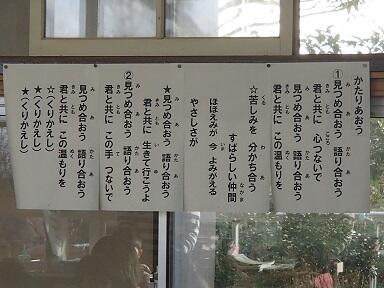 かたりあおう
①見つめ合おう 語り合おう
君と共に 心つないで
見つめ合おう 語り合おう
君と共に この温もりを
☆苦しみを 分かち合う
すばらしい仲間
ほほえみが 今 よみがえる
やさしさが
★見つめ合おう 語り合おう
君と共に 生きて行こうよ
②見つめ合おう 語り合おう
君と共に この手 つないで
見つめ合おう 語り合おう
君と共に この温もりを
☆(くりかえし)
★(くりかえし)
★(くりかえし)